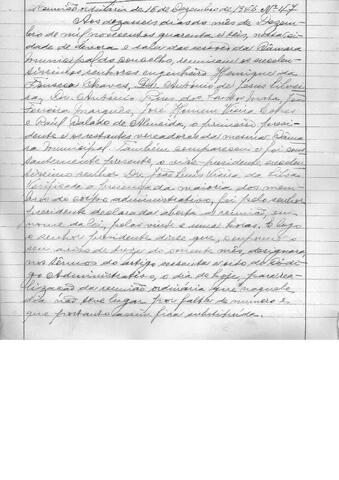 Reunião ordinária de 16 de Dezembro de 1946 Nº 47
Aos dezasseis dias do mês de Dezem-
bro de mil novecentos quarenta e seis, nesta ci-
dade de e sala das sessões da Câmara
Municipal do concelho, reuniram os excelen-
tíssimos senhores engenheiro Henrique da
Fonseca Chaves, Dr. António de Jesus
Dr. António Pires dos Santos
Ferreira Marques, José Homem
e Raúl de Almeida, o primeiro, presi-
dente e os restantes vereadores da mesma Câma-
ra Municipal. Também compareceu e foi cons-
tantemente presente, o vice-presidente excelen-
tíssimo senhor Dr. João Vieira da Silva
Verificada a presença da maioria dos mem-
bros do corpo administrativo, foi pelo senhor
presidente declarada aberta a reunião, em
nome da lei, pelas vinte e uma horas. E logo
o senhor presidente disse que, conforme o
seu aviso de treze do corrente mês, designara
nos têrmos do artigo sessenta e oito do Códi-
go Administrativo, o dia de hoje, para rea-
lização da reunião ordinária que naquele
dia não teve lugar por falta de número e
que portanto assim fica substituida.